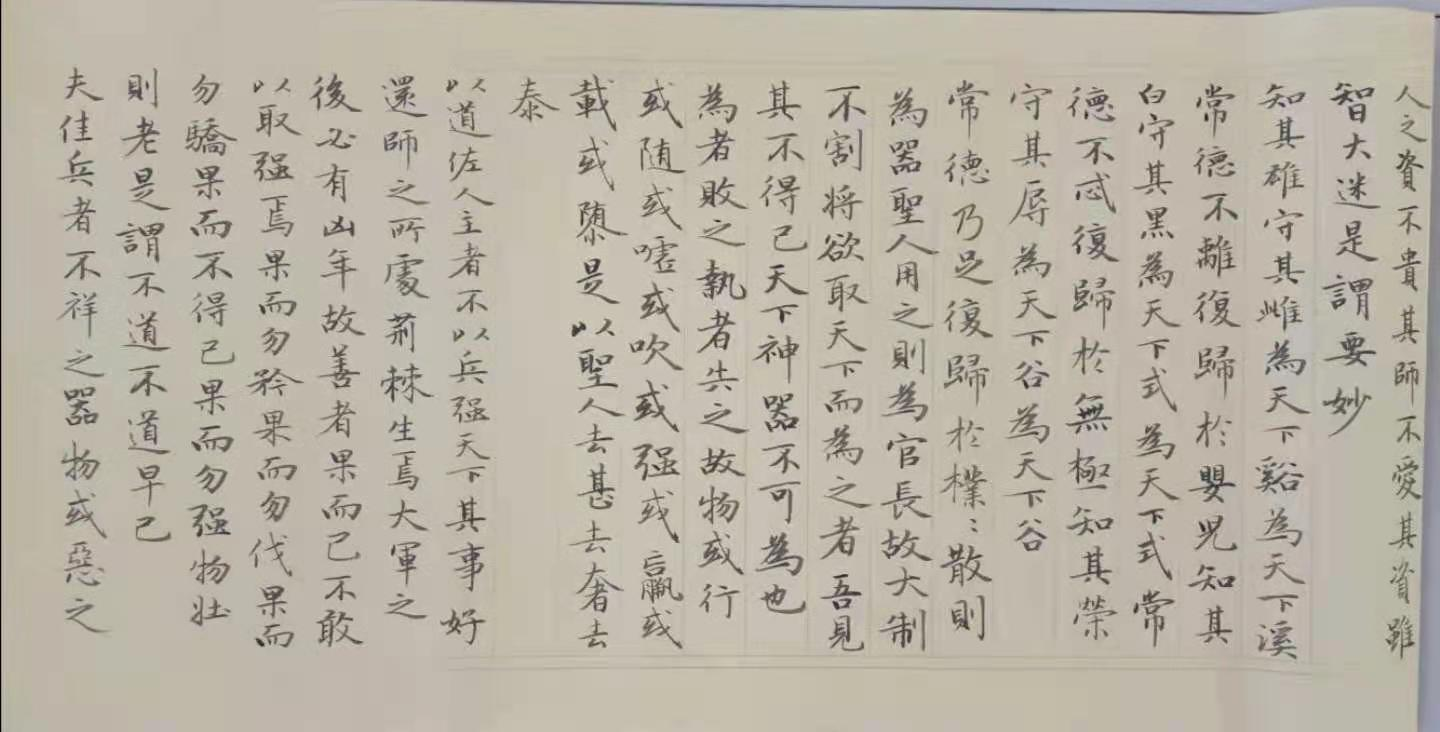 人之資不貴其師不愛其資雖
智大迷是謂要妙
知其雄守其雌為天下谿為天下溪
常德不離復歸於嬰兒知其
白守其黑為天下式為天下式常
德不忒復歸於無極知其榮
守其辱為天下谷為天下谷
常德乃足復歸於樸〻散則
為器聖人用之則為官長故大制
不割將欲取天下而為之者吾見
其不得已天下神器不可為也
為者敗之執者失之故物或行
或随或噓或吹或强或羸或
載或隳是以聖人去甚去奢去
泰
以道佐人主者不以兵强天下其事好
還師之所處荊棘生焉大軍之
後必有凶年故善者果而已不敢
以取强焉果而勿矜果而勿伐果而
勿驕果而不得已果而勿强物壯
則老是謂不道不道早已
夫佳兵者不祥之器物或惡之